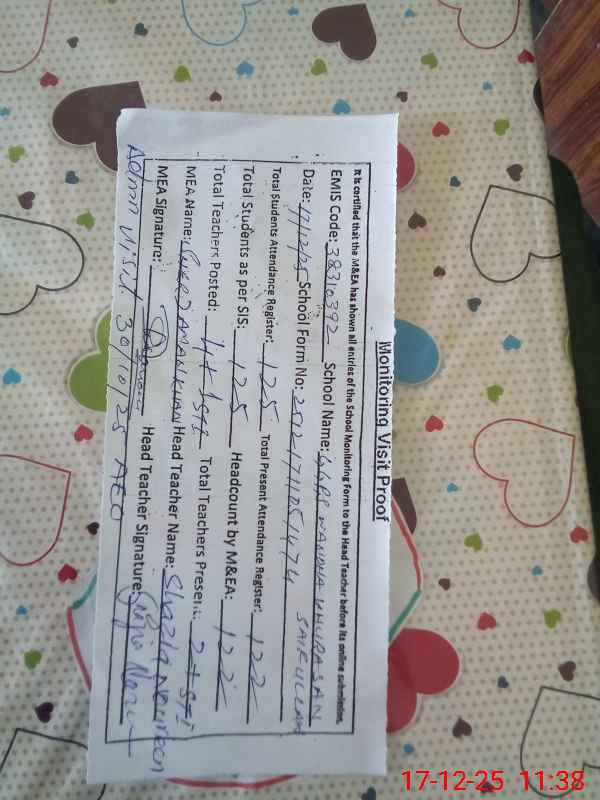 Monitoring Visit Proof
It is certified that the M&EA has shown all entries of the School Monitoring Form to the Head Teacher before its online submission.
EMIS Code: 38310392 School Name: GGPS
Date: 17/12/25 School Form No: SAIFULLAH
Total Students Attendance Register: 125 Total Present Attendance Register: 122
Total Students as per SIS: 125 Headcount by M&EA: 122
Total Teachers Posted: 4+1STI Total Teachers Present: 2+STI
MEA Name: KHAN Head Teacher Name: Shazia
MEA Signature: Head Teacher Signature: Shazia
Admn visit 30/10/25 AEO
17-12-25 11:38